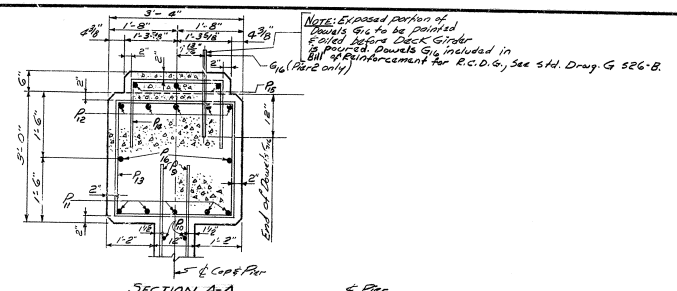 3'- 4"
1'- 8" 1'- 8"
4 3/8" 1'-3 5/8" 1'-3 5/8" 4 3/8"
2" 2"
NOTE: Exposed portion of
Dowels G16 to be painted
& oiled before Deck Girder
is poured. Dowels G16 included in
Bill of Reinforcement for R.C.D.G., See Std. Drwg. G 526-B.
G16 (Pier 2 only)
6" 2" 2" P15
P12
P14
1'-6" 18"
3'-0" P16
P9
End of Dowels G16
P13
1'-6" 2" 2"
P11
P10
2" 1½" 1½"
1'-2" 12" 1'-2"
℄ Cap & Pier
SECTION A-A
℄ Pier